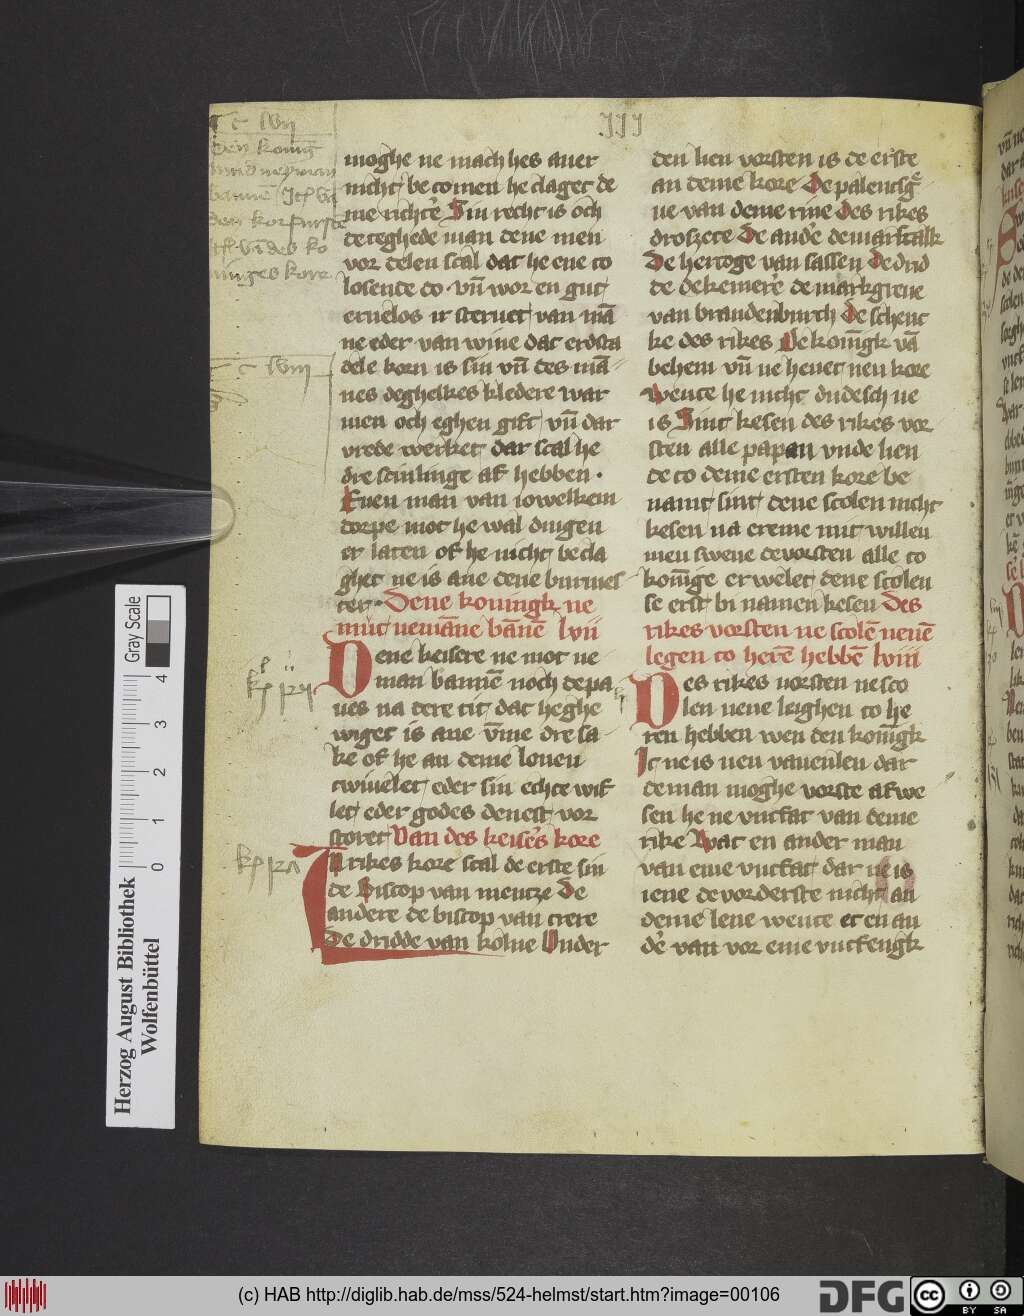 III
c lvii
den koning
bannen
der korfurste
c lviii
moghe ne mach hes auer
nicht becomen he claget de
me richte͛ Sin recht is och
deteghede man dene men
vor delen scal dat he ene to
losente to · vn̄ wor en gut
eruelos ir steruet van mā
ne eder van wiue dat erdsta
dele korn is sin vn̄ des mā
nes deghelkes kledere war
men och eghen gift vn̄ dar
vrede werket dar scal he
dre scinlinge af hebben ·
Euen man van iowelkem
dorpe mot he wal dingen
er laten of he nicht becla
ghet ne is ane dene burmes
ter · Dene koningk ne
mut nemāne bānē lvii
Dene keisere ne mot ne
man bannē noch depa
ues na dere tit dat heghe
wiget is ane v̄me dre sa
ke of he an deme louen
twiuelet eder sin echte wif
let eder godes denest vor
storet Van des keise͛s kore
In rikes kore scal de erste sin
de Biscop van mentze De
andere de biscop van trere
De dridde van kolne Vnder
den lien vorsten is de erste
an deme kore De palentsg͛
ue van deme rine des rikes
droszete De ande͛ de marstalk
De hertoge van sassen De drid
de dekemere͛ de markgreue
van brandenburch De schenc
ke des rikes De konīgk vā
behem vn̄ ne heuet nen kore
wente he nicht dudesch ne
is Sint kesen des rikes vor
sten alle papan vnde lien
de to deme ersten kore be
namt sint dene scolen nicht
kesen na ereme mit willen
men swene devorsten alle to
konīge erwelet dene scolen
se erst bi namen kesen Des
rikes vorsten ne scolē nenē
legen to herē hebbē lviii
Des rikes vorsten nesco
len nene leighen to he
ren hebben wen den konīgk
It ne is nen vanenlen dar
deman moghe vorste afwe
sen he ne vntfat van deme
rike wat en ander man
van eme vntfat dar ne is
iene de vorderste nicht an
deme lene wente et en an
de͛ van vor eme vntfengk
Gray Scale
0 1 2 3 4
Herzog August Bibliothek
Wolfenbüttel
(c) HAB http://diglib.hab.de/mss/524-helmst/start.htm?image=00106
DFG
CC BY SA